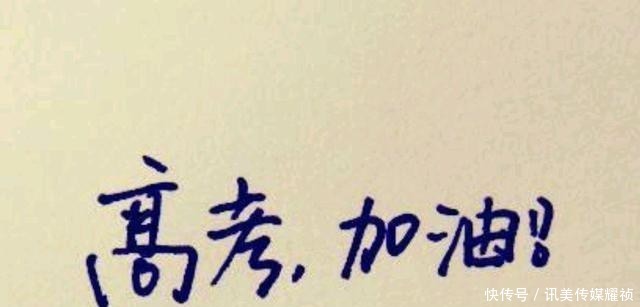 高考,加油!!
快传号/讯美传媒耀祯